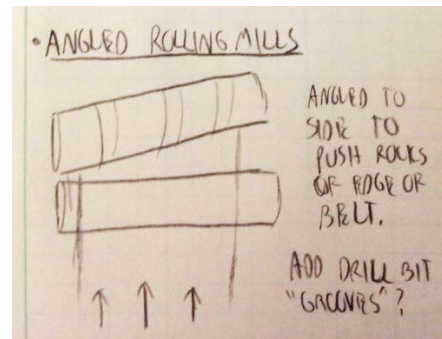 • ANGLED ROLLING MILLS
ANGLED TO
SIDE TO
PUSH ROCKS
OF EDGE OR
BELT.
ADD DRILL BIT
"GROOVES"?